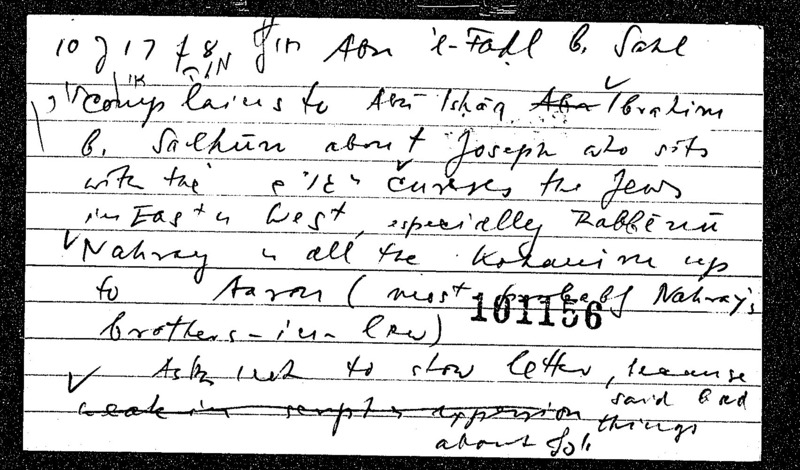 10 J 17 f 8, Abu 'l-Faḍl b. Sahl
complains to Abū Isḥāq Abra Ibrahim
b. Salhūn about Joseph who sits
with the curses the Jews
in East & West, especially Rabbēnū
Nahray & all the Kohanim up
to Aaron (most probably Nahray's
101156
brothers-in-law)
Asks not to show letter, because
weak in script & expression said bad
things
about Jos.